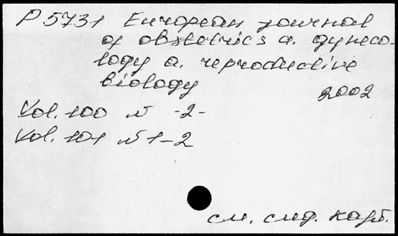 P 5731 European journal
of obstetrics a. gyneco-
logy a. reproductive
biology
2002
Vol. 100 N -2-
Vol. 101 N 1-2
см. след. карт.